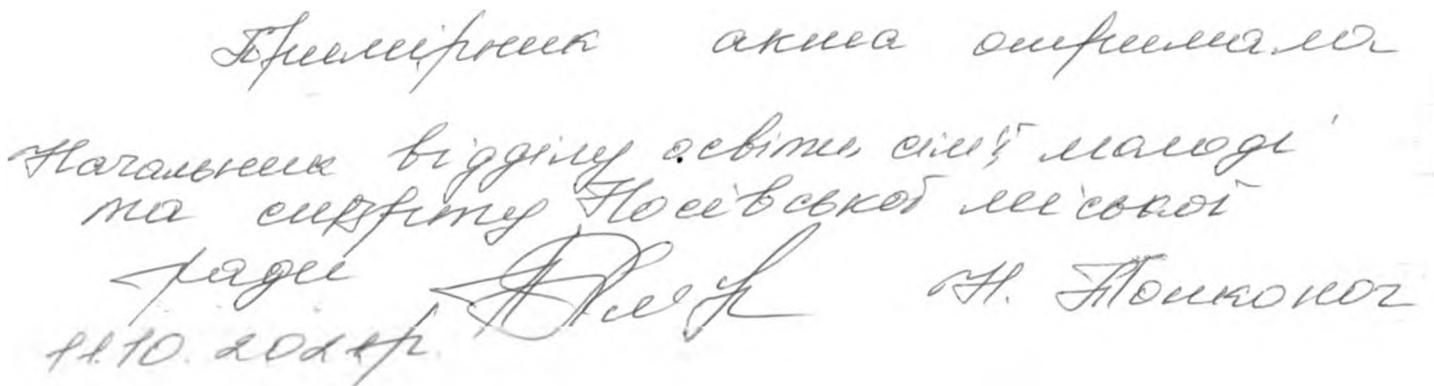 Примірник акта отримала
Начальник відділу освіти, сім'ї, молоді
та спорту Носівської міської
ради Н. Тонконог
11.10.2021р.